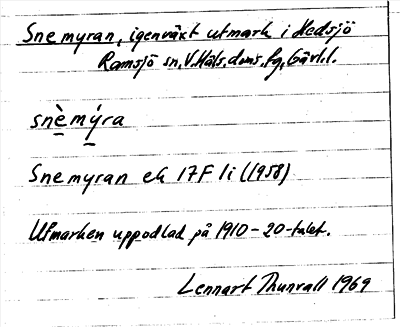 Snemyran, igenväxt utmark i Hedsjö
Ramsjö sn, V. Häls. doms. fg, Gävl.l.
snèmýra
Snemyran ek 17F 1i (1958)
Utmarken uppodlad på 1910-20-talet.
Lennart Thunvall 1969